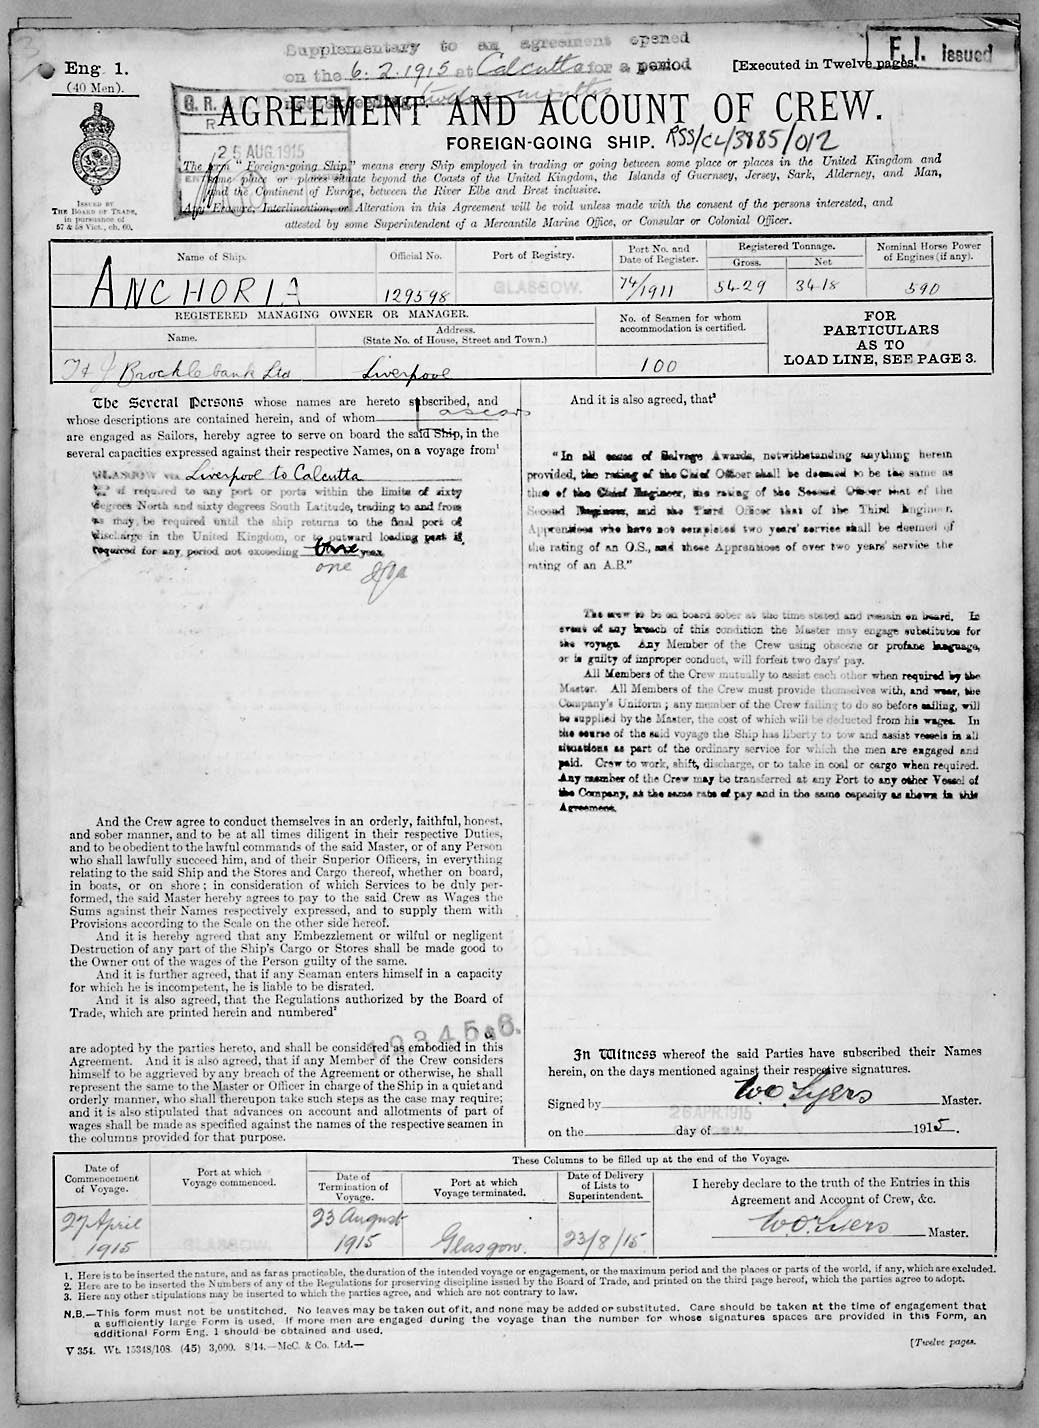 Supplementary to an agreement opened
on the 6.2.1915 at Calcutta for a period
twelve months
F.I. Issued
Eng 1.
(40 Men).
[Executed in Twelve pages.
AGREEMENT AND ACCOUNT OF CREW.
FOREIGN-GOING SHIP. RSS/CL/3885/012
25 AUG 1915
ISSUED BY
THE BOARD OF TRADE,
in pursuance of
57 & 58 Vict., ch. 60.
The term "Foreign-going Ship" means every Ship employed in trading or going between some place or places in the United Kingdom and
some place or places situate beyond the Coasts of the United Kingdom, the Islands of Guernsey, Jersey, Sark, Alderney, and Man,
and the Continent of Europe, between the River Elbe and Brest inclusive.
Any Erasure, Interlineation, or Alteration in this Agreement will be void unless made with the consent of the persons interested, and
attested by some Superintendent of a Mercantile Marine Office, or Consular or Colonial Officer.
Name of Ship. Official No. Port of Registry. Port No. and Date of Register. Registered Tonnage. Gross. Net Nominal Horse Power of Engines (if any).
ANCHORIA 129598 GLASGOW. 74/1911 5429 3418 590
REGISTERED MANAGING OWNER OR MANAGER.
Name. Address. (State No. of House, Street and Town.) No. of Seamen for whom accommodation is certified.
T & J Brocklebank Ltd Liverpool 100
FOR
PARTICULARS
AS TO
LOAD LINE, SEE PAGE 3.
The Several Persons whose names are hereto subscribed, and
whose descriptions are contained herein, and of whom Lascars
are engaged as Sailors, hereby agree to serve on board the said Ship, in the
several capacities expressed against their respective Names, on a voyage from¹
GLASGOW via Liverpool to Calcutta
if required to any port or ports within the limits of sixty
degrees North and sixty degrees South Latitude, trading to and from
as may be required until the ship returns to the final port of
discharge in the United Kingdom, or to outward loading port if
required for any period not exceeding year
one
And the Crew agree to conduct themselves in an orderly, faithful, honest,
and sober manner, and to be at all times diligent in their respective Duties,
and to be obedient to the lawful commands of the said Master, or of any Person
who shall lawfully succeed him, and of their Superior Officers, in everything
relating to the said Ship and the Stores and Cargo thereof, whether on board,
in boats, or on shore; in consideration of which Services to be duly per-
formed, the said Master hereby agrees to pay to the said Crew as Wages the
Sums against their Names respectively expressed, and to supply them with
Provisions according to the Scale on the other side hereof.
And it is hereby agreed that any Embezzlement or wilful or negligent
Destruction of any part of the Ship's Cargo or Stores shall be made good to
the Owner out of the wages of the Person guilty of the same.
And it is further agreed, that if any Seaman enters himself in a capacity
for which he is incompetent, he is liable to be disrated.
And it is also agreed, that the Regulations authorized by the Board of
Trade, which are printed herein and numbered²
1 2 3 4 5 & 6.
are adopted by the parties hereto, and shall be considered as embodied in this
Agreement. And it is also agreed, that if any Member of the Crew considers
himself to be aggrieved by any breach of the Agreement or otherwise, he shall
represent the same to the Master or Officer in charge of the Ship in a quiet and
orderly manner, who shall thereupon take such steps as the case may require;
and it is also stipulated that advances on account and allotments of part of
wages shall be made as specified against the names of the respective seamen in
the columns provided for that purpose.
And it is also agreed, that³
"In all cases of Salvage Awards, notwithstanding anything herein
provided, the rating of the Chief Officer shall be deemed to be the same as
that of the Chief Engineer, the rating of the Second Officer that of the
Second Engineer, and the Third Officer that of the Third Engineer.
Apprentices who have not completed two years' service shall be deemed of
the rating of an O.S., and those Apprentices of over two years' service the
rating of an A.B."
The crew to be on board sober at the time stated and remain on board. In
event of any breach of this condition the Master may engage substitutes for
the voyage. Any Member of the Crew using obscene or profane language,
or is guilty of improper conduct, will forfeit two days' pay.
All Members of the Crew mutually to assist each other when required by the
Master. All Members of the Crew must provide themselves with, and wear, the
Company's Uniform; any member of the Crew failing to do so before sailing, will
be supplied by the Master, the cost of which will be deducted from his wages. In
the course of the said voyage the Ship has liberty to tow and assist vessels in all
situations as part of the ordinary service for which the men are engaged and
paid. Crew to work, shift, discharge, or to take in coal or cargo when required.
Any member of the Crew may be transferred at any Port to any other Vessel of
the Company, at the same rate of pay and in the same capacity as shewn in this
Agreement.
In Witness whereof the said Parties have subscribed their Names
herein, on the days mentioned against their respective signatures.
Signed by W.O. Syers Master.
26 APR. 1915
on the day of 1915.
Date of Commencement of Voyage. Port at which Voyage commenced. These Columns to be filled up at the end of the Voyage.
Date of Termination of Voyage. Port at which Voyage terminated. Date of Delivery of Lists to Superintendent.
I hereby declare to the truth of the Entries in this
Agreement and Account of Crew, &c.
27 April 1915 GLASGOW. 23 August 1915 Glasgow. 23/8/15
W.O. Syers Master.
1. Here is to be inserted the nature, and as far as practicable, the duration of the intended voyage or engagement, or the maximum period and the places or parts of the world, if any, which are excluded.
2. Here are to be inserted the Numbers of any of the Regulations for preserving discipline issued by the Board of Trade, and printed on the third page hereof, which the parties agree to adopt.
3. Here any other stipulations may be inserted to which the parties agree, and which are not contrary to law.
N.B.—This form must not be unstitched. No leaves may be taken out of it, and none may be added or substituted. Care should be taken at the time of engagement that
a sufficiently large Form is used. If more men are engaged during the voyage than the number for whose signatures spaces are provided in this Form, an
additional Form Eng. 1 should be obtained and used.
V 354. Wt. 15348/108. (45) 3,000. 8/14.—McC. & Co. Ltd.—
[Twelve pages.